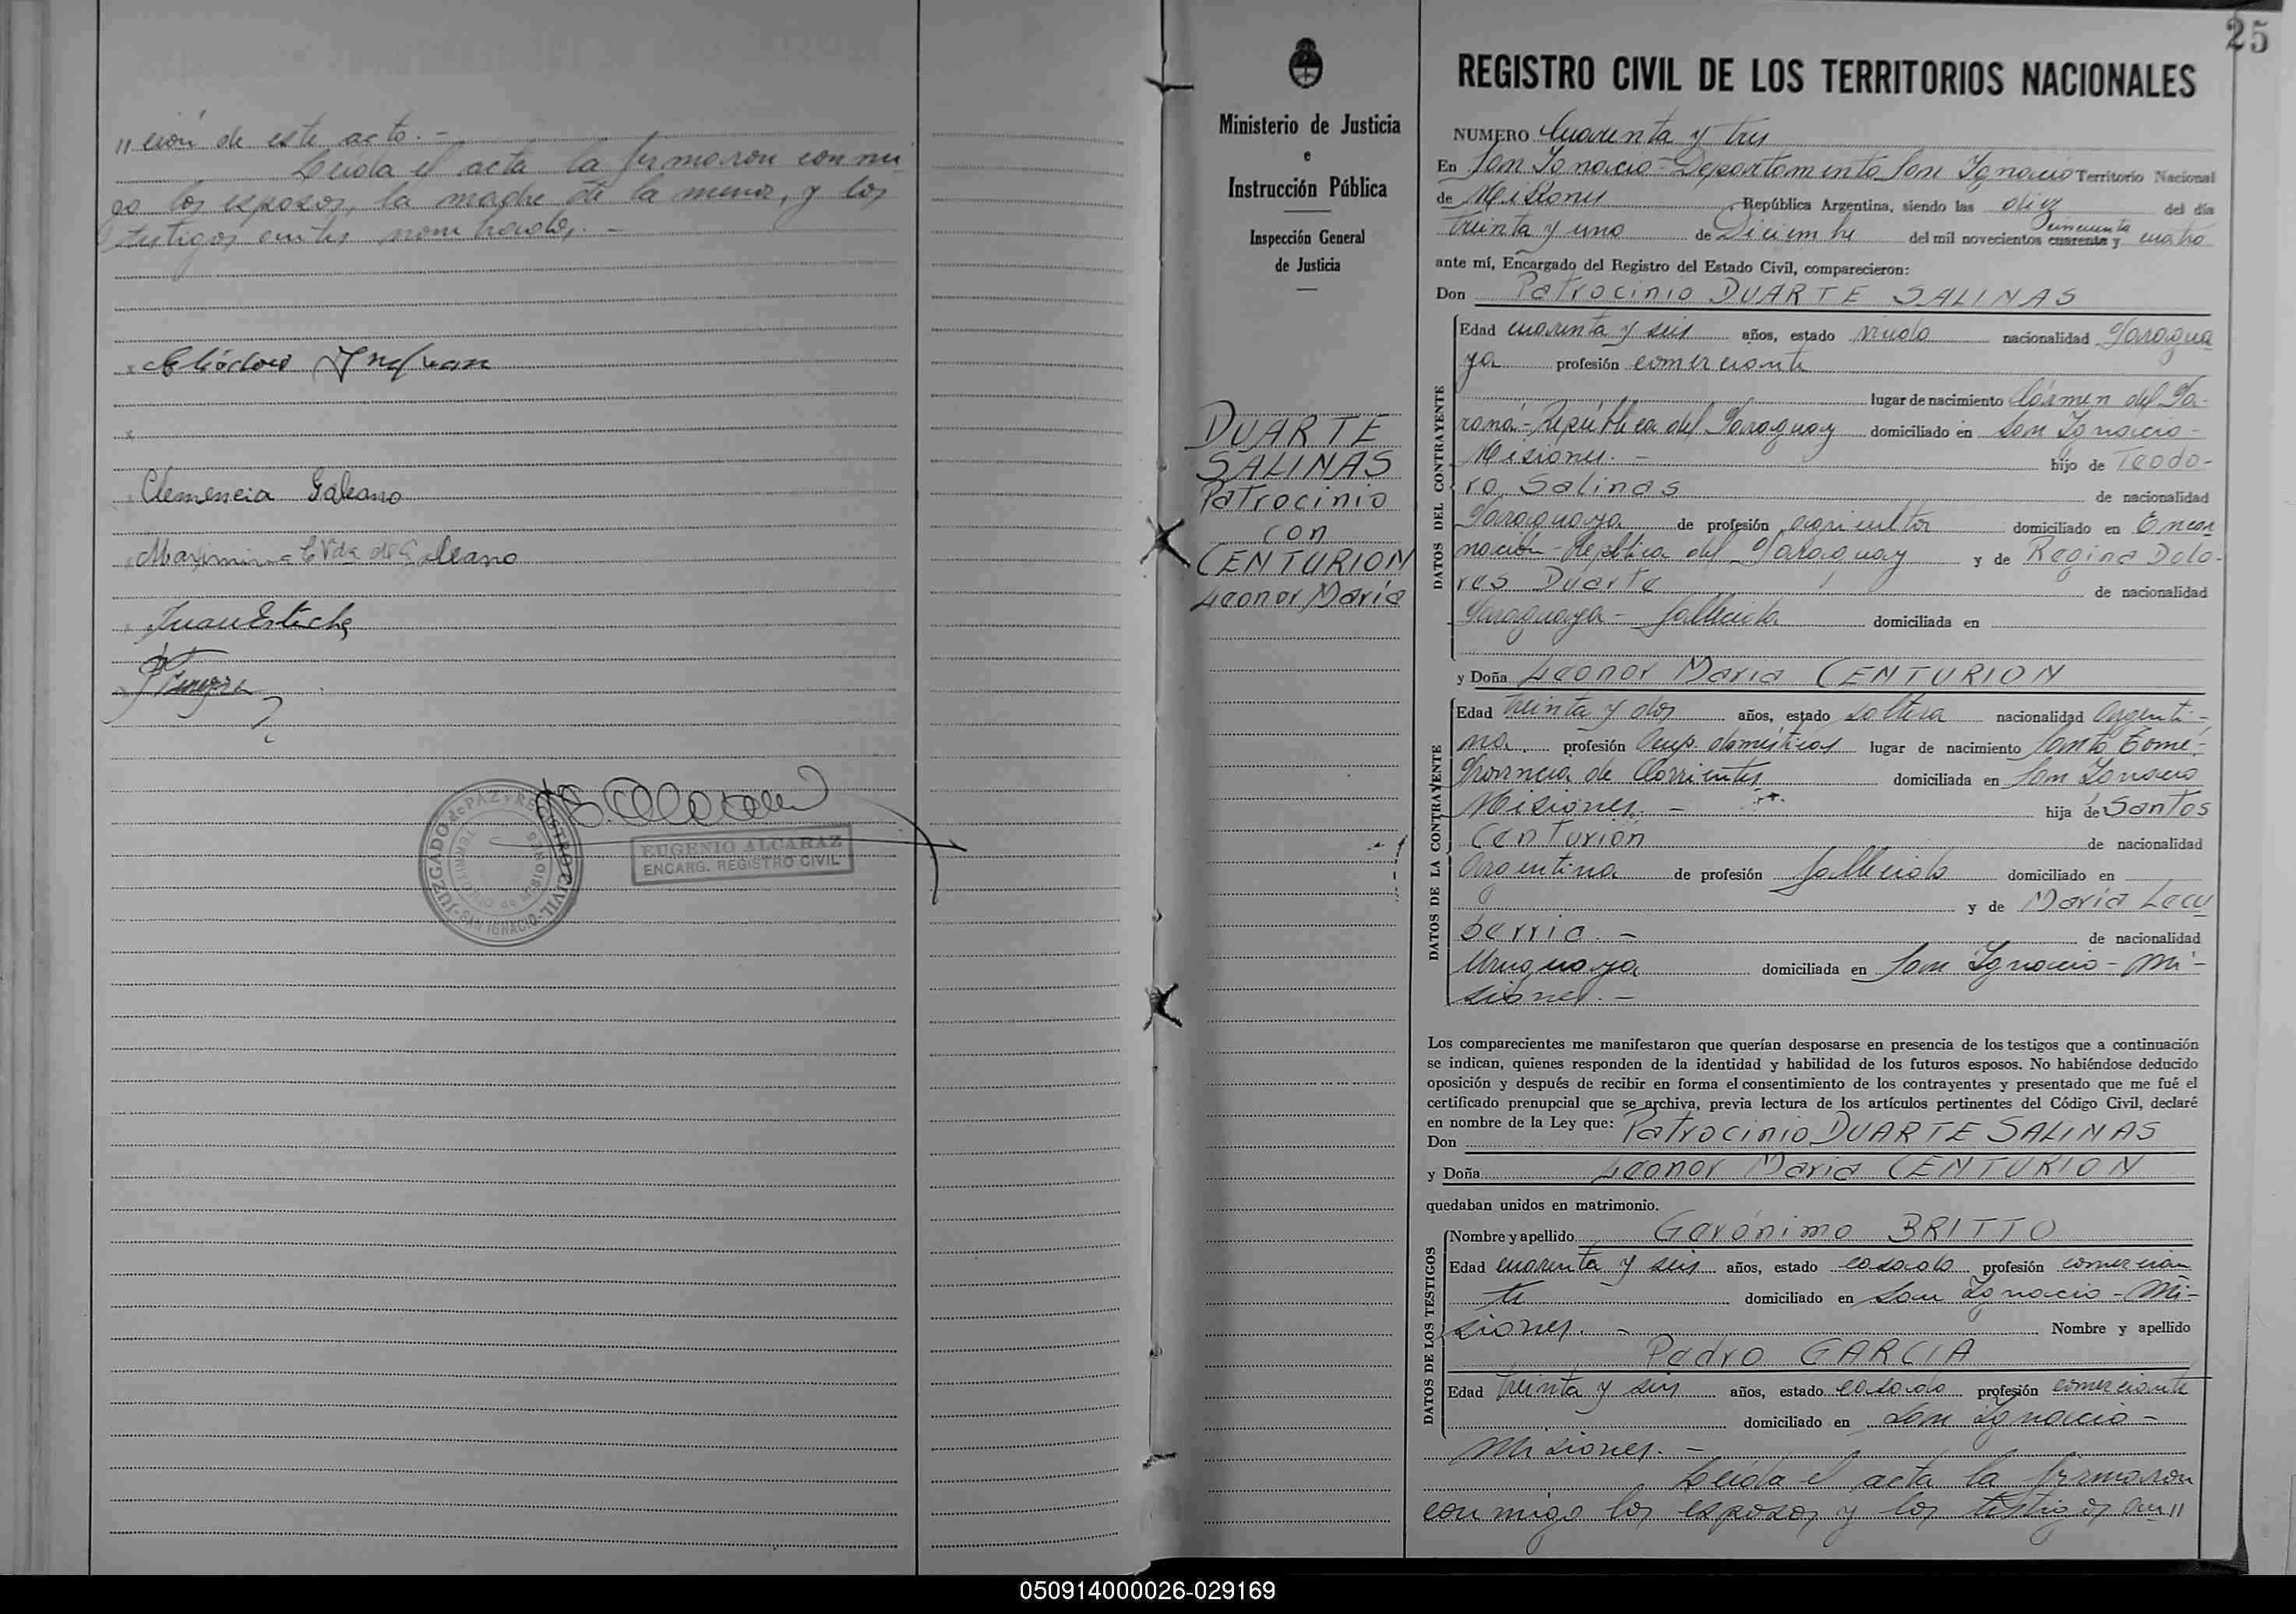 " ción de este acto.-
Leída el acta la firmaron conmi
go los esposos, la madre de la menor, y los
testigos antes nombrados.-
x
x
Clemencia Galeano
Maximina C Vda de Galeano
JUZGADO de PAZ y REGISTRO CIVIL
SAN IGNACIO
TERRITORIO de MISIONES
EUGENIO ALCARAZ
ENCARG. REGISTRO CIVIL
25
Ministerio de Justicia
e
Instrucción Pública
Inspección General
de Justicia
DUARTE
SALINAS
Patrocinio
con
CENTURION
Leonor María
REGISTRO CIVIL DE LOS TERRITORIOS NACIONALES
NUMERO Cuarenta y tres
En San Ignacio-Departamento San Ignacio Territorio Nacional
de Misiones, República Argentina, siendo las diez del día
treinta y uno de Diciembre del mil novecientos cuarenta y cincuenta cuatro
ante mí, Encargado del Registro del Estado Civil, comparecieron:
Don Patrocinio DUARTE SALINAS
DATOS DEL CONTRAYENTE
Edad cuarenta y seis años, estado viudo nacionalidad Paragua
ya profesión comerciante
lugar de nacimiento Cármen del Pa-
raná-República del Paraguay domiciliado en San Ignacio-
Misiones.- hijo de Teodo-
ro Salinas de nacionalidad
Paraguaya de profesión agricultor domiciliado en Encar
nación-República del Paraguay y de Regina Dolo-
res Duarte de nacionalidad
Paraguaya- fallecida domiciliada en
y Doña Leonor María CENTURION
DATOS DE LA CONTRAYENTE
Edad treinta y dos años, estado soltera nacionalidad Argenti-
na. profesión Ocup. domésticas lugar de nacimiento Santo Tomé-
Provincia de Corrientes domiciliada en San Ignacio
Misiones.- hija de Santos
Centurión de nacionalidad
Argentina de profesión fallecido domiciliado en
y de María Lecu
berrio.- de nacionalidad
Uruguaya domiciliada en San Ignacio-Mi-
siones.-
Los comparecientes me manifestaron que querían desposarse en presencia de los testigos que a continuación
se indican, quienes responden de la identidad y habilidad de los futuros esposos. No habiéndose deducido
oposición y después de recibir en forma el consentimiento de los contrayentes y presentado que me fué el
certificado prenupcial que se archiva, previa lectura de los artículos pertinentes del Código Civil, declaré
en nombre de la Ley que:
Don Patrocinio DUARTE SALINAS
y Doña Leonor María CENTURION
quedaban unidos en matrimonio.
DATOS DE LOS TESTIGOS
Nombre y apellido Gerónimo BRITTO
Edad cuarenta y seis años, estado casado profesión comercian
te domiciliado en San Ignacio-Mi-
siones.- Nombre y apellido
Pedro GARCIA
Edad treinta y seis años, estado casado profesión comerciante
domiciliado en San Ignacio-
Misiones.-
Leída el acta la firmaron
conmigo los esposos y los testigos an"
050914000026-029169